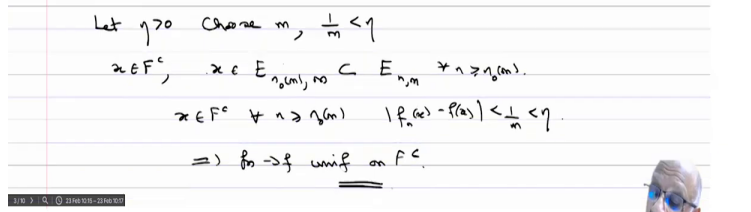 Let η>0 choose m, 1/m < η
x ∈ F^c, x ∈ E_{n_0(m), m} ⊂ E_{n,m} ∀ n ≥ n_0(m).
x ∈ F^c ∀ n ≥ n_0(m) |f_n(x) - f(x)| < 1/m < η.
⇒ f_n → f unif on F^c.
3/10 23 Feb 10:15 - 23 Feb 10:17